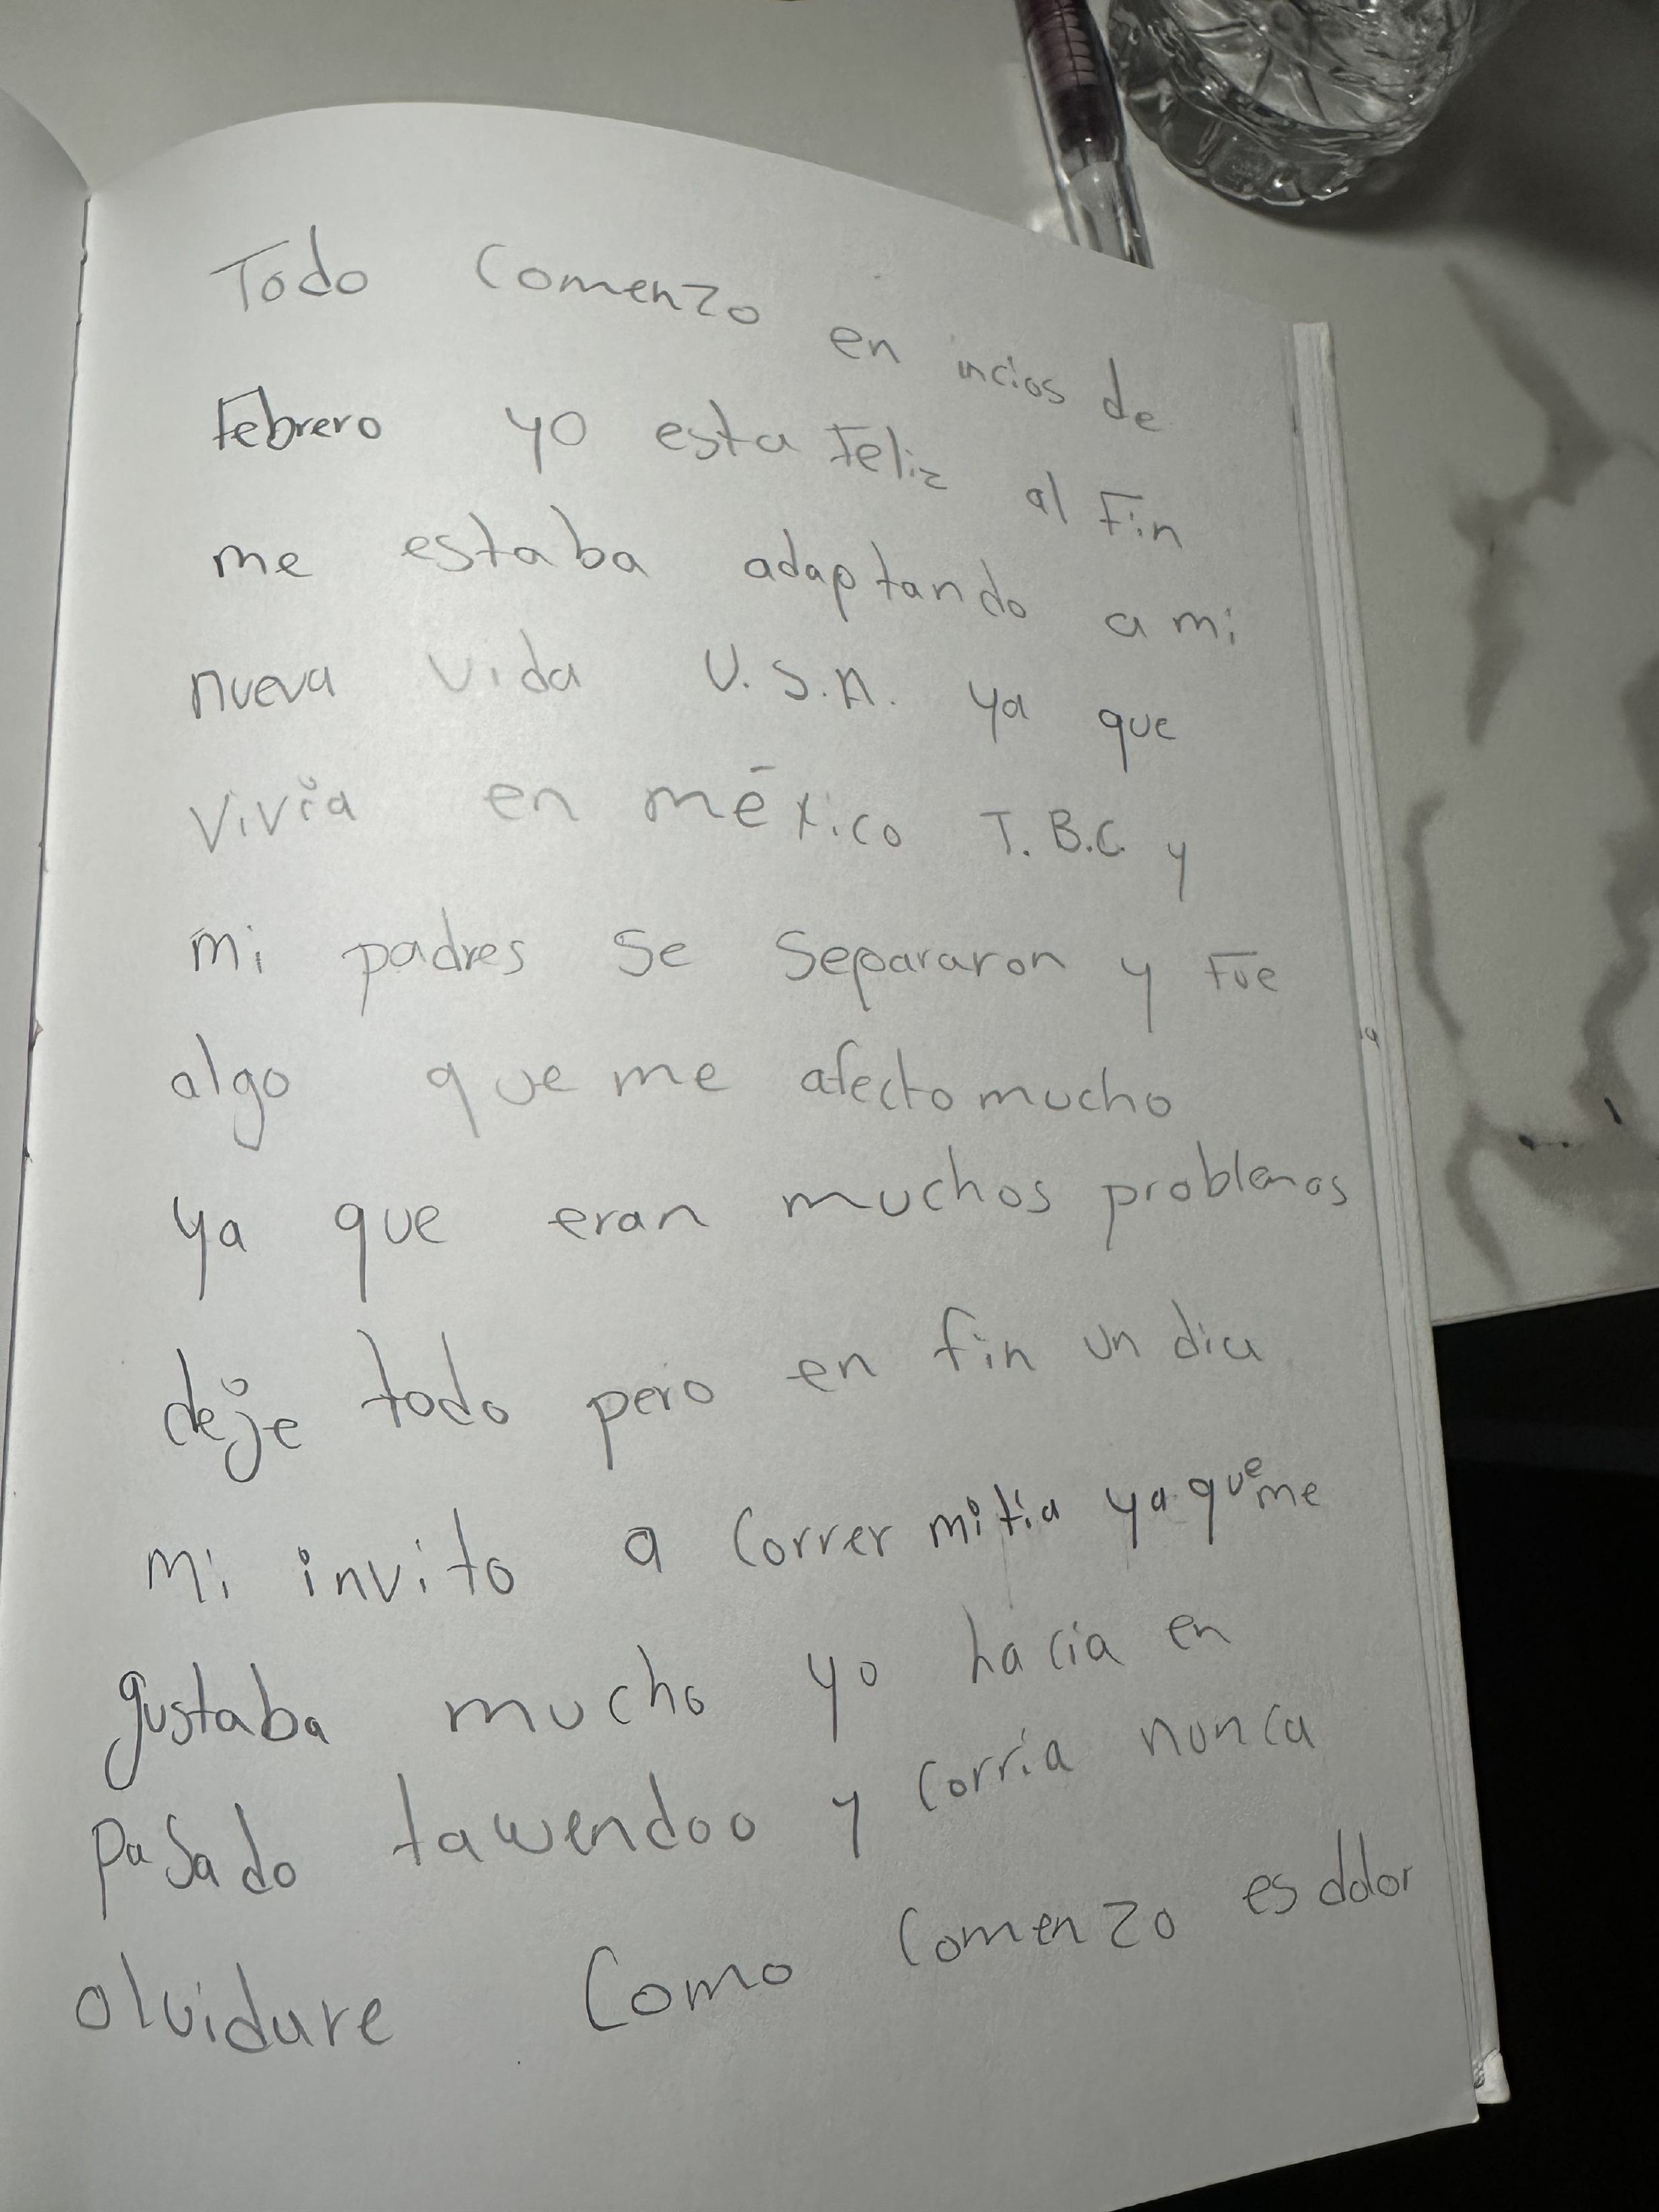 Todo Comenzo en incios de
Febrero yo esta Feliz al Fin
me estaba adaptando a mi
nueva vida U.S.A. ya que
vivia en méxico T.B.C. y
mi padres se separaron y Fue
algo que me afecto mucho
ya que eran muchos problemas
deje todo pero en fin un dia
mi invito a correr mi tia ya que me
gustaba mucho yo hacia en
pasado tawendoo y corria nunca
olvidare Como comenzo es dolor